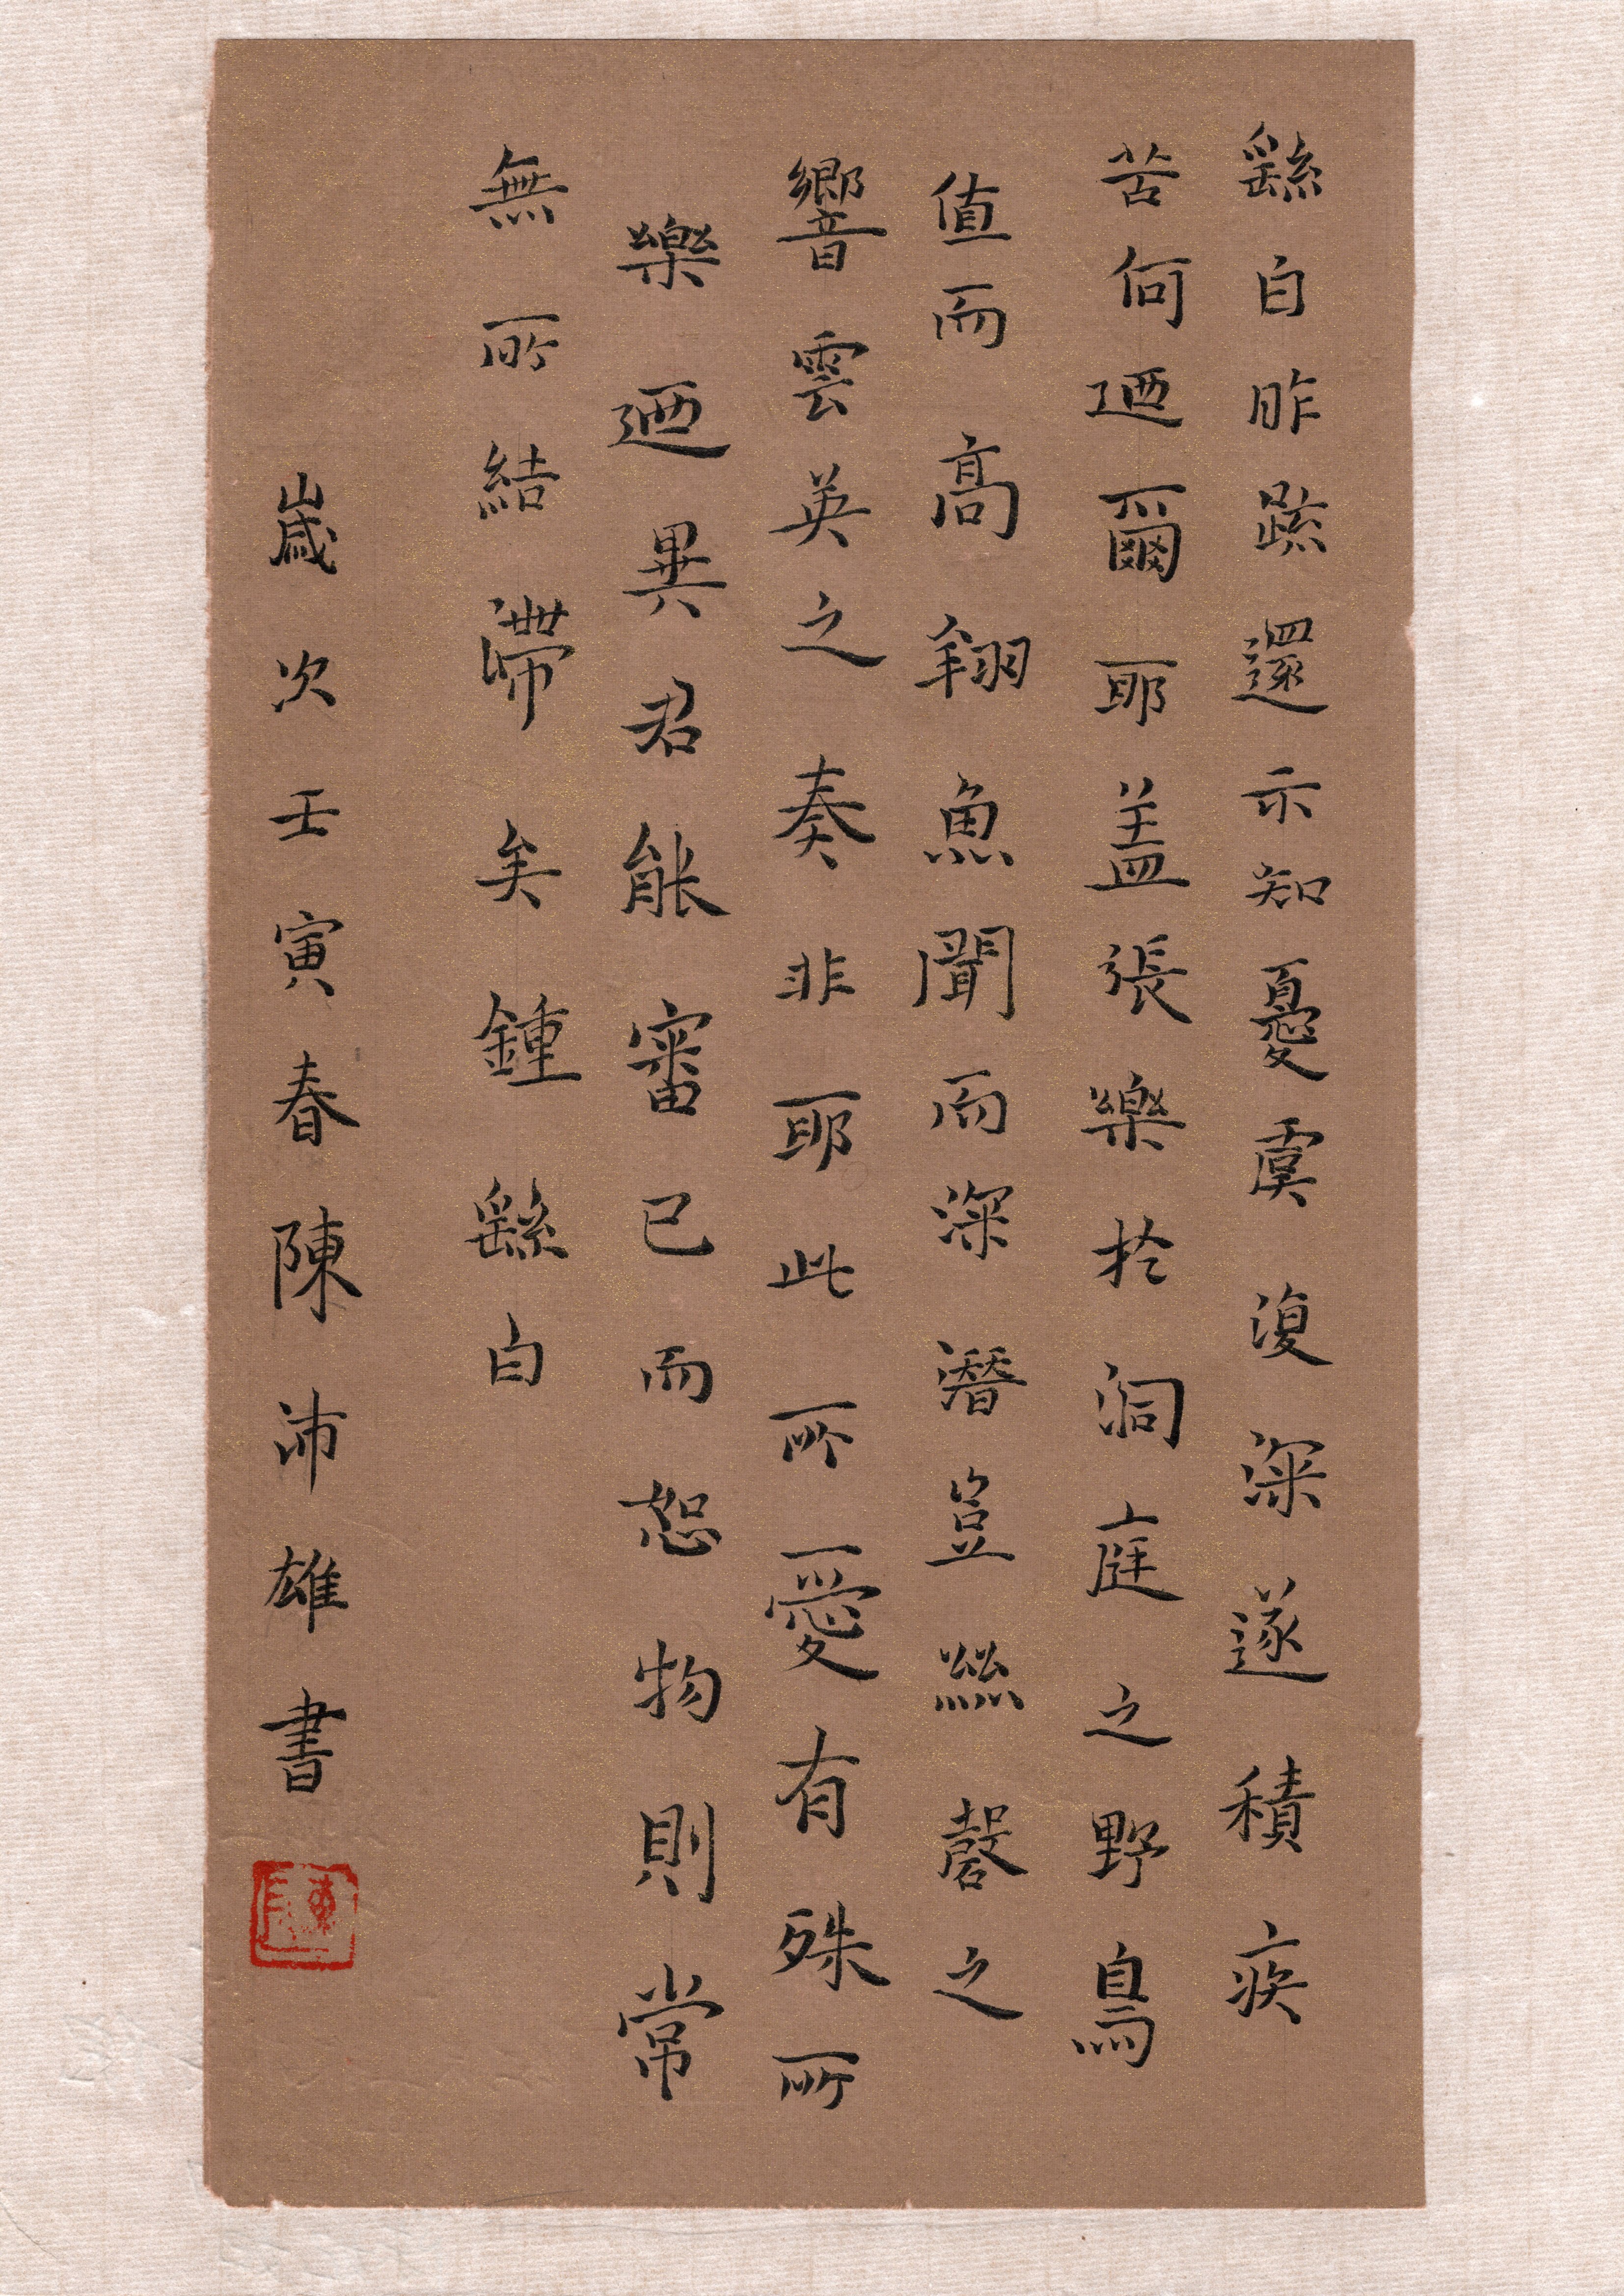 繇白昨疏還示知憂虞復深遂積疾
苦何迺爾耶盖張樂於洞庭之野鳥
值而高翔魚聞而深潛豈絲磬之
響雲英之奏非耶此所愛有殊所
樂迺異君能審己而恕物則常
無所結滯矣鍾繇白
歲次壬寅春陳沛雄書